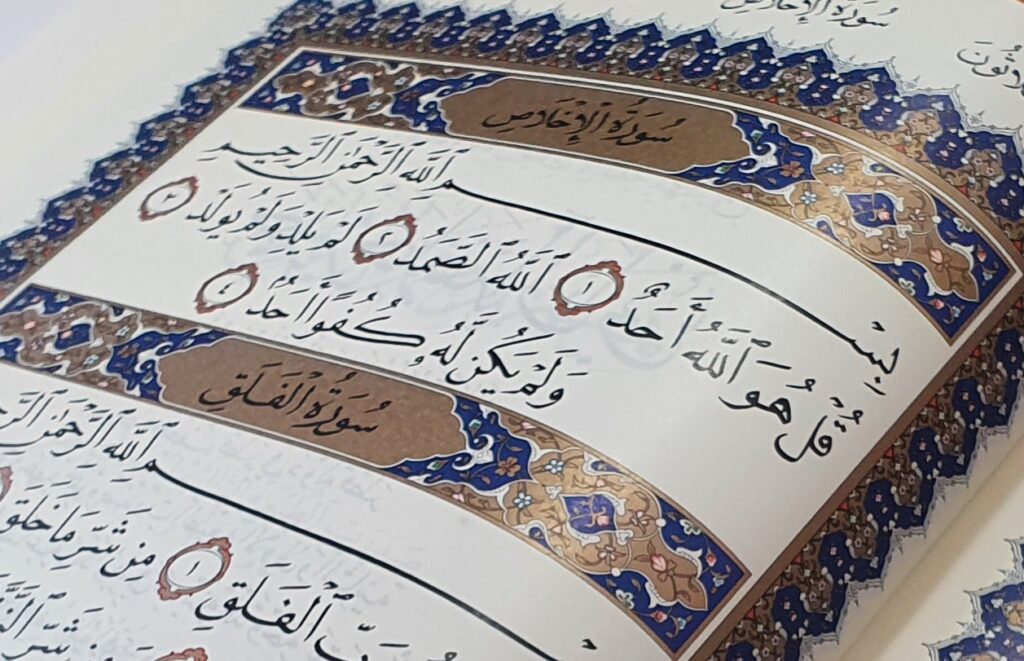 سُورَةُ الإِخْلَاصِ
سُورَةُ الإِخْلَاصِ
بِسْمِ ٱللَّهِ ٱلرَّحْمَٰنِ ٱلرَّحِيمِ
قُلْ هُوَ ٱللَّهُ أَحَدٌ ١ ٱللَّهُ ٱلصَّمَدُ ٢ لَمْ يَلِدْ وَلَمْ يُولَدْ ٣
وَلَمْ يَكُن لَّهُۥ كُفُوًا أَحَدٌۢ ٤
سُورَةُ الْفَلَقِ
بِسْمِ ٱللَّهِ ٱلرَّحْمَٰنِ
ٱلْفَلَقِ ١ مِن شَرِّ مَا خَلَقَ